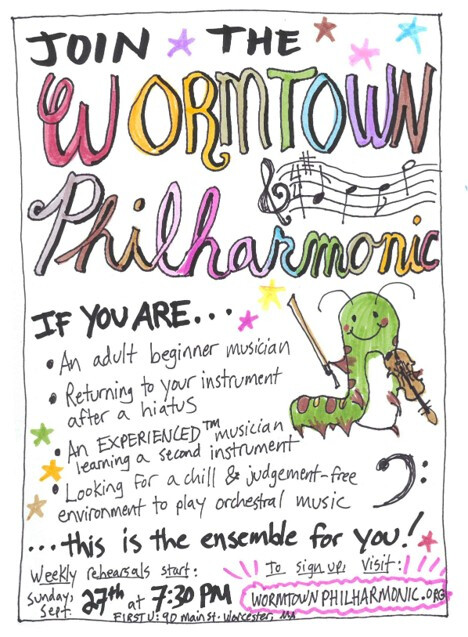 JOIN THE
WORMTOWN
Philharmonic
IF YOU ARE...
• An adult beginner musician
• Returning to your instrument
after a hiatus
• An EXPERIENCED™ musician
learning a second instrument
• Looking for a chill & judgement-free
environment to play orchestral music
...this is the ensemble for you!
Weekly rehearsals start:
Sunday, Sept. 27th at 7:30 PM
FIRST U: 90 main st. Worcester, MA
To sign up, visit:
WORMTOWNPHILHARMONIC.ORG